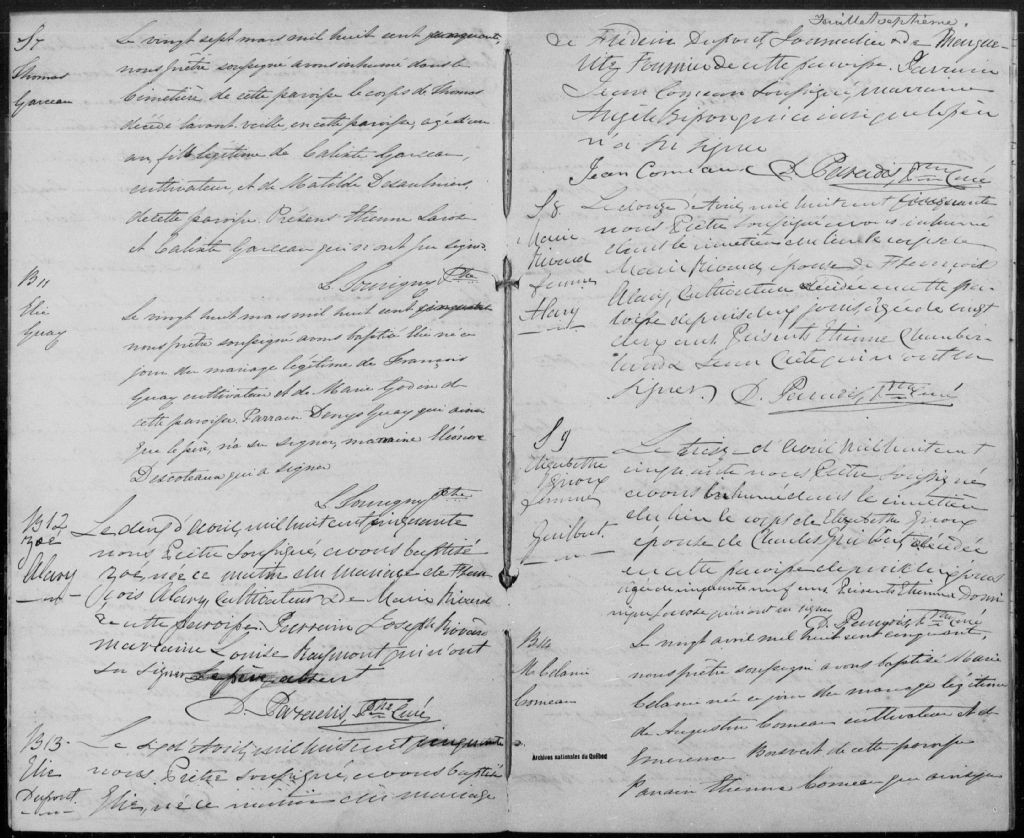 S7
Thomas
Garceau
Le vingt sept mars mil huit cent cinquante,
nous prêtre soussigné avons inhumé dans le
Cimetière de cette paroisse le corps de Thomas
décédé l'avant-veille en cette paroisse, agé d'un
an, fils légitime de Calixte Garceau,
cultivateur, et de Matilde Désaulniers
de cette paroisse. Présens Etienne
et Calixte Garceau qui n'ont su signer
L Souvigny Ptre
B11
Elie
Guay
Le vingt huit mars mil huit cent cinquante
nous prêtre soussigné avons baptisé Elie né ce
jour du mariage légitime de François
Guay cultivateur et de Marie Godin de
cette paroisse. Parrain Denys Guay qui ainsi
que le père, n'a su signer, maraine Eléonore
Descoteaux qui a signer
L Souvigny Ptre
B12
Zoé
Alary
Le deux d'Avril, mil huit cent cinquante
nous Prêtre Soussigné, avons baptisé
Zoé, née ce matin du mariage de Fran
çois Alary, Cultivateur & de Marie Rivard
de cette paroisse. Parrain Joseph
marraine Louise qui n'ont
su signer Le père absent
D. Paradis, Ptre Curé
B13.
Elie
Dupont
Le d'Avril, mil huit cent cinquante
nous Prêtre soussigné, avons baptisé
Elie, né ce matin du mariage
Feuillet septième.
de Frédéric Dupont, Journalier & de Margue-
rite Fournier de cette paroisse. Parrain
Jean Comeau Soussigné, marraine
Angèle qui ainsi que le père
n'a su signer
Jean Comeau. D. Paradis, Ptre Curé
S8.
Marie
Rivard
femme
Alary
Le douze d'Avril, mil huit cent cinquante
nous Prêtre Soussigné avons inhumé
dans le cimetière du lieu le corps de
Marie Rivard, épouse de François
Alary, Cultivateur décédée en cette pa-
roisse depuis deux jours agée de vingt
deux ans. Présents Etienne
Jean qui n'ont su
signer. D. Paradis, Ptre Curé
S9
Elizabethe
femme
Guilbert
Le treize d'Avril mil huit cent
cinquante nous Prêtre Soussigné
avons inhumé dans le cimetière
du lieu le corps de Elizabethe
épouse de Charles Guilbert, décédée
en cette paroisse depuis deux jours
agée de cinquante neuf ans Présents Etienne
qui n'ont su signer
D. Paradis, Ptre Curé
B14
M. Célanie
Comeau
Le vingt avril mil huit cent cinquante,
nous prêtre soussigné avons baptisé Marie
Célanie née ce jour du mariage légitime
de Augustin Comeau cultivateur et de
Emerence Boisvert de cette paroisse
Parrain Etienne Comeau qui ainsi que
Archives nationales du Québec